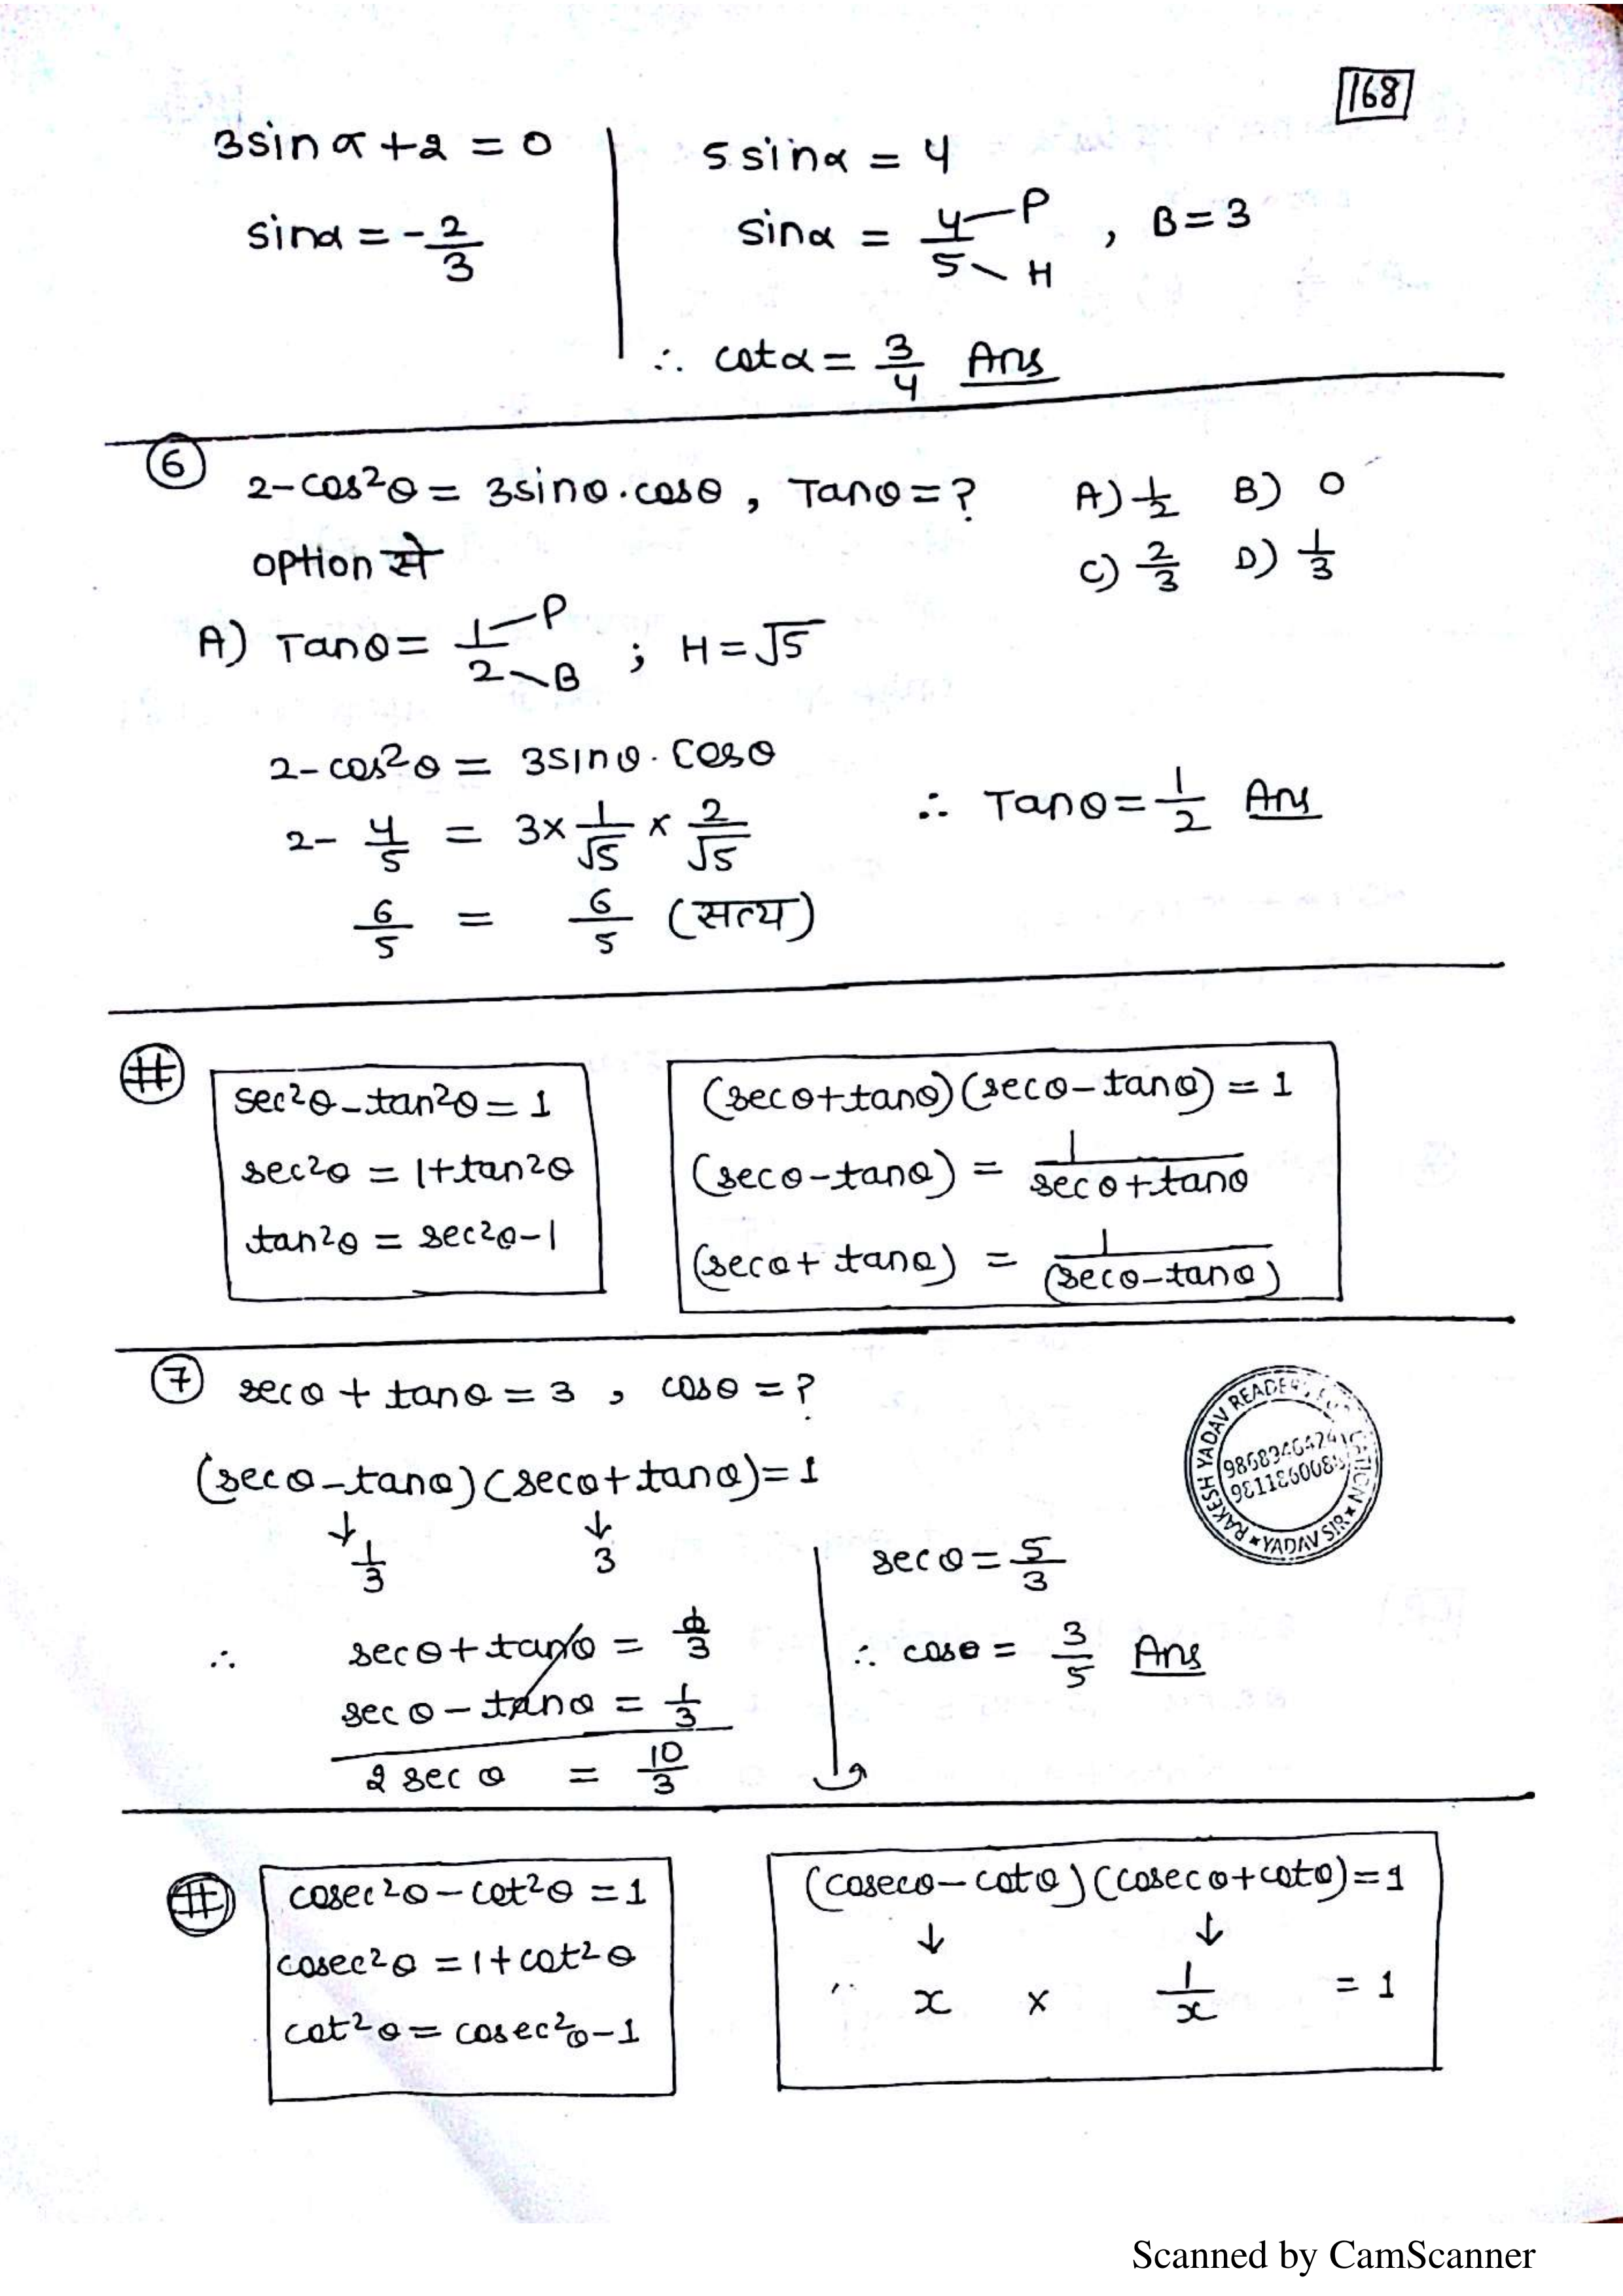 168
3sinα+2 = 0
sinα = -2/3
5 sinα = 4
sinα = 4/5 P H , B = 3
∴ cotα = 3/4 Ans
⑥ 2-cos²θ = 3sinθ.cosθ , Tanθ = ? A) 1/2 B) 0
option से C) 2/3 D) 1/3
A) Tanθ = 1/2 P B ; H = √5
2-cos²θ = 3sinθ. Cosθ
2- 4/5 = 3× 1/√5 × 2/√5 ∴ Tanθ = 1/2 Ans
6/5 = 6/5 (सत्य)
#
sec²θ-tan²θ = 1
sec²θ = 1+tan²θ
tan²θ = sec²θ-1
(secθ+tanθ)(secθ-tanθ) = 1
(secθ-tanθ) = 1/secθ+tanθ
(secθ+tanθ) = 1/(secθ-tanθ)
⑦ secθ + tanθ = 3 , cosθ = ?
(secθ-tanθ)(secθ+tanθ) = 1
↓ ↓
1/3 3
∴ secθ+tanθ = /3
secθ-tanθ = 1/3
2 secθ = 10/3
secθ = 5/3
∴ cosθ = 3/5 Ans
RAKESH YADAV
YADAV SIR
#
cosec²θ-cot²θ = 1
cosec²θ = 1+cot²θ
cot²θ = cosec²θ-1
(cosecθ-cotθ)(cosecθ+cotθ) = 1
↓ ↓
x × 1/x = 1
Scanned by CamScanner